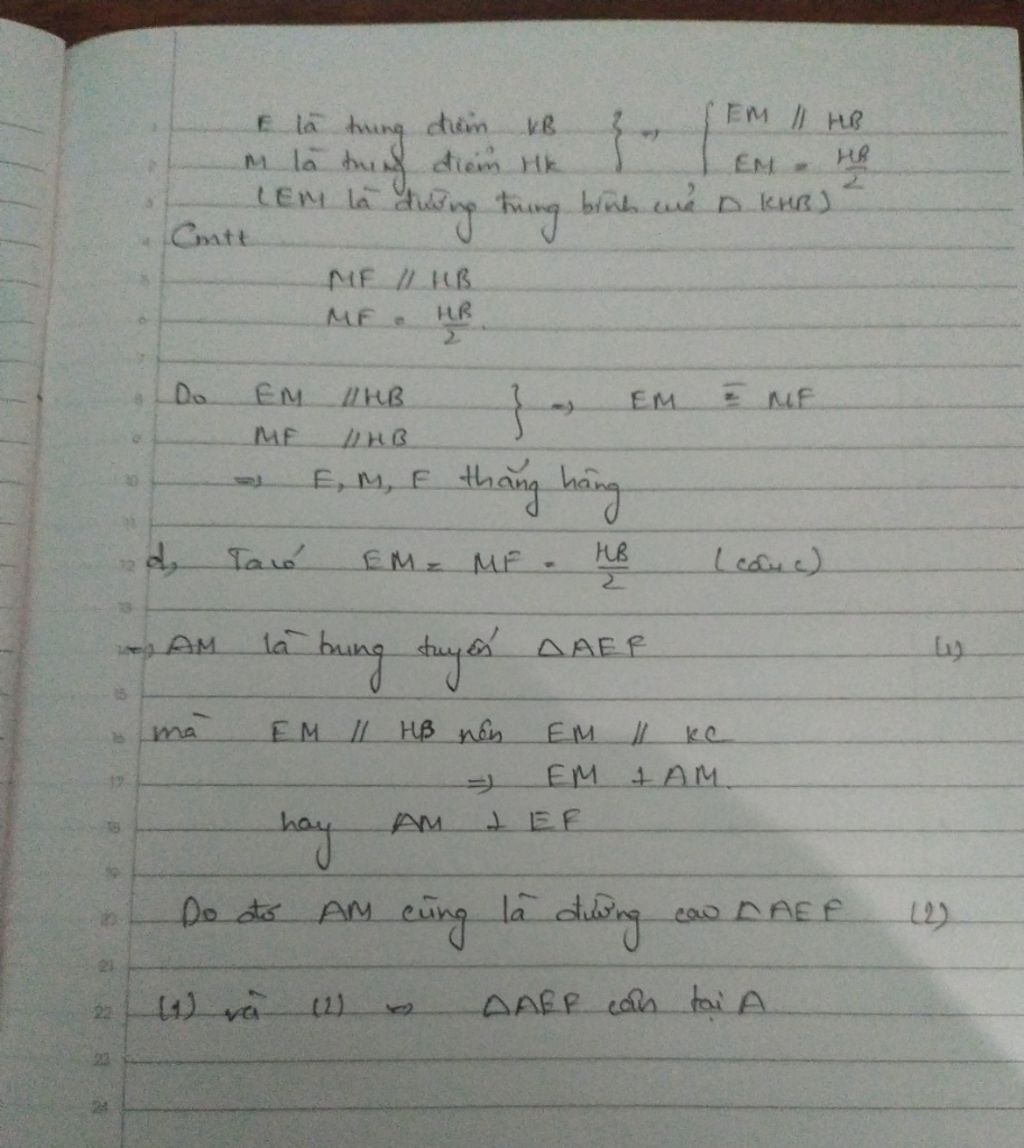 E là trung điểm KB } => { EM // HB
M là trung điểm HK EM = HB/2
(EM là đường trung bình của Δ KHB)
Cmtt
MF // HB
MF = HB/2
Do EM // HB } => EM ≡ MF
MF // HB
=> E, M, F thẳng hàng
d, Ta có EM = MF = HB/2 (câu c)
=> AM là trung tuyến ΔAEF (1)
mà EM // HB nên EM // KC
=> EM ⊥ AM.
hay AM ⊥ EF
Do đó AM cũng là đường cao ΔAEF (2)
(1) và (2) => ΔAEF cân tại A